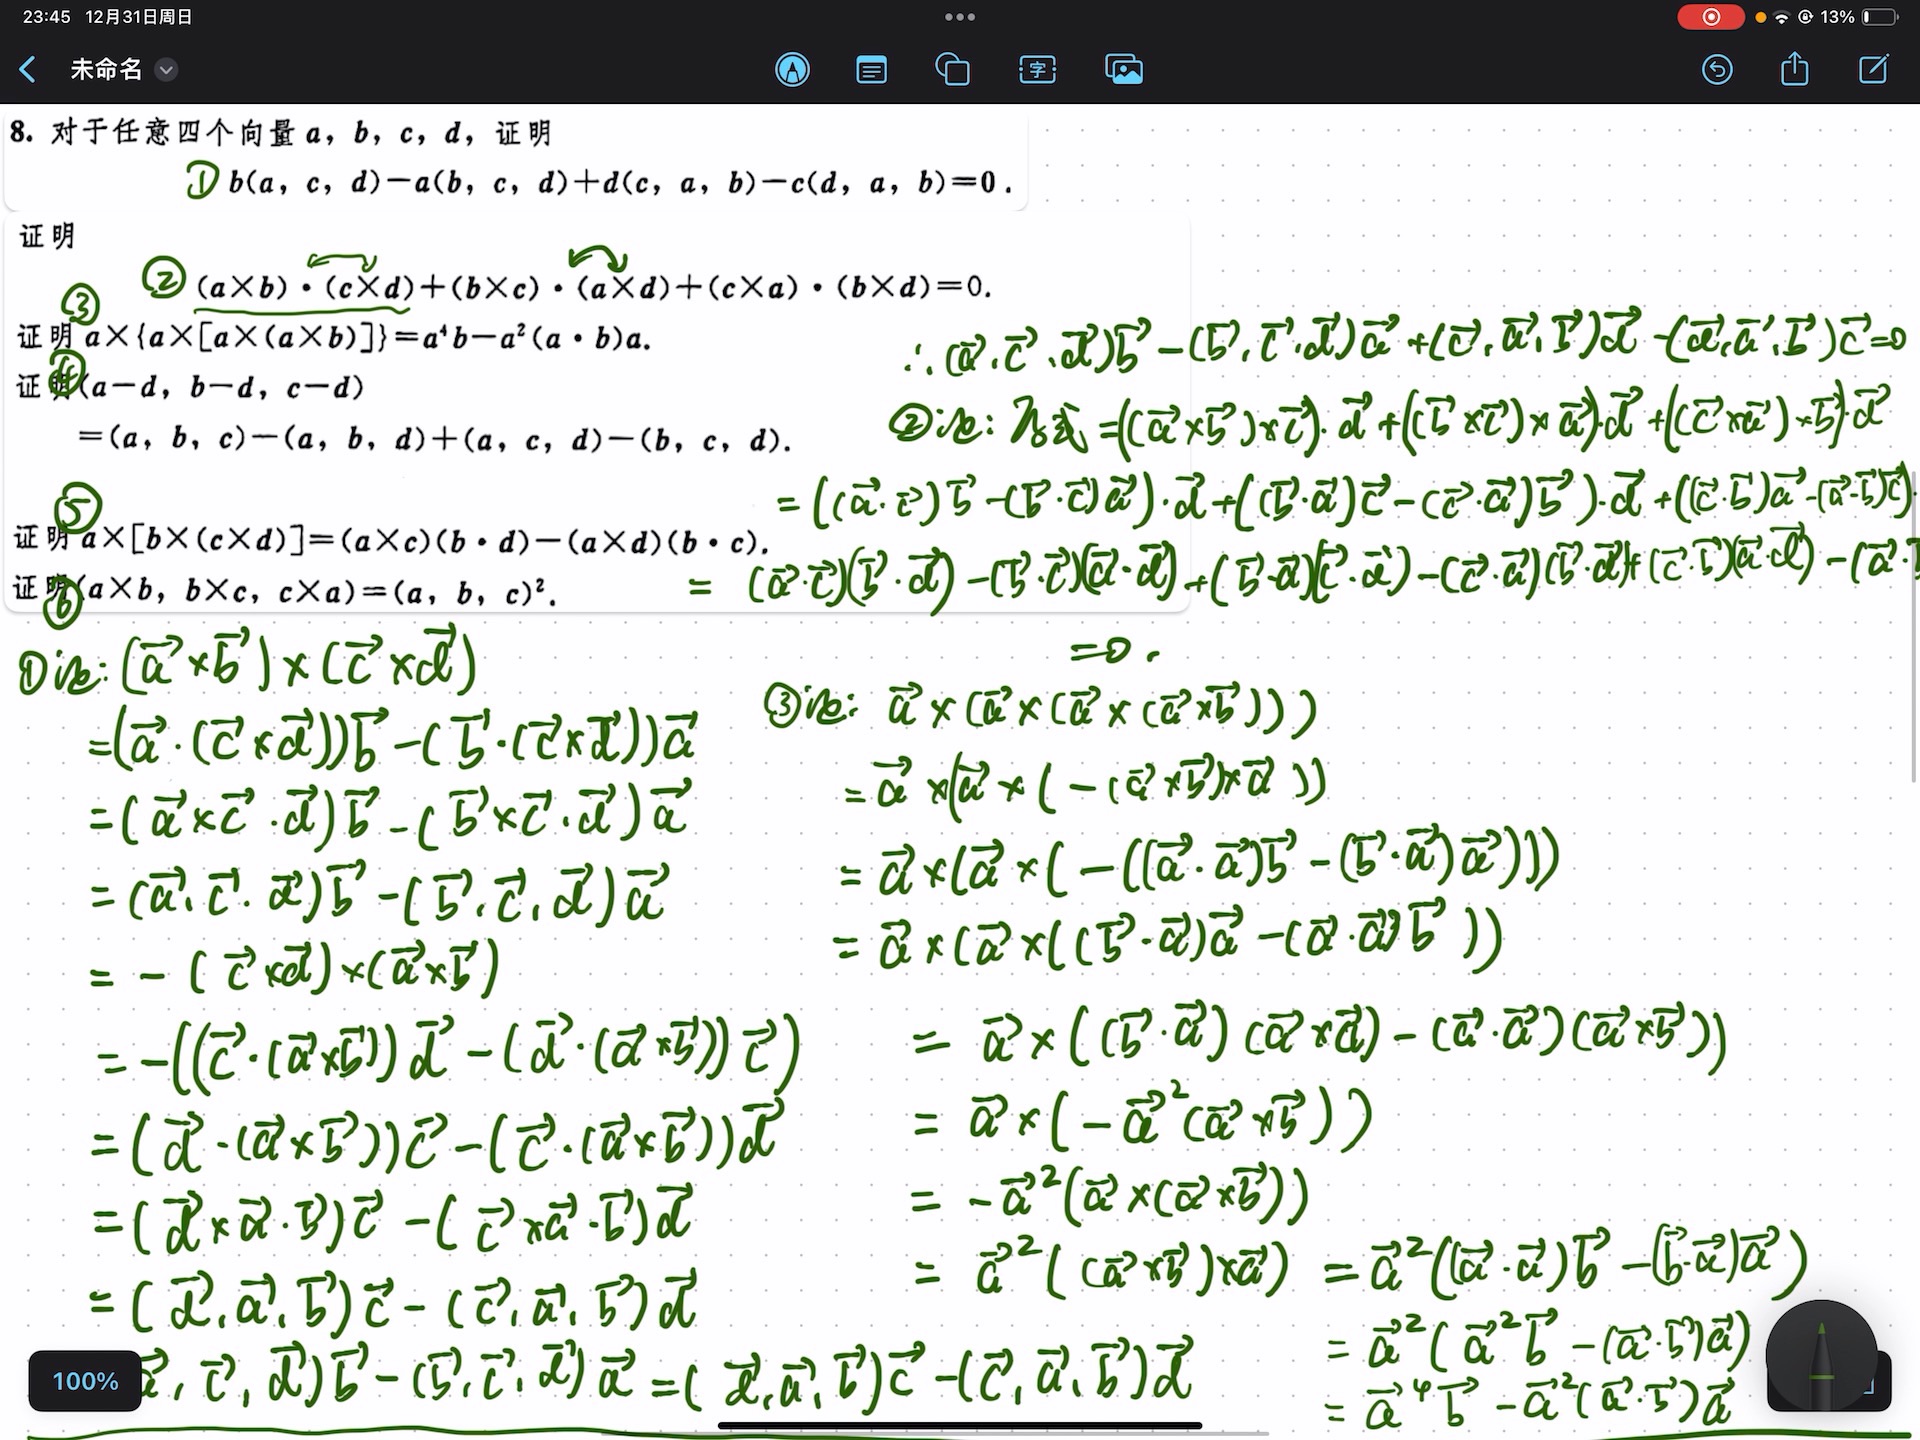 23:45 12月31日周日
13%
未命名
字
8. 对于任意四个向量 a, b, c, d, 证明
① b(a, c, d)−a(b, c, d)+d(c, a, b)−c(d, a, b)=0.
证明
② (a×b)·(c×d)+(b×c)·(a×d)+(c×a)·(b×d)=0.
③
证明 a×{a×[a×(a×b)]}=a⁴b−a²(a·b)a.
④
证明(a−d, b−d, c−d)
=(a, b, c)−(a, b, d)+(a, c, d)−(b, c, d).
⑤
证明 a×[b×(c×d)]=(a×c)(b·d)−(a×d)(b·c).
证明(a×b, b×c, c×a)=(a, b, c)².
⑥
①证: (a⃗×b⃗)×(c⃗×d⃗)
=(a⃗·(c⃗×d⃗))b⃗−(b⃗·(c⃗×d⃗))a⃗
=(a⃗×c⃗·d⃗)b⃗−(b⃗×c⃗·d⃗)a⃗
=(a⃗,c⃗,d⃗)b⃗−(b⃗,c⃗,d⃗)a⃗
=−(c⃗×d⃗)×(a⃗×b⃗)
=−((c⃗·(a⃗×b⃗))d⃗−(d⃗·(a⃗×b⃗))c⃗)
=(d⃗·(a⃗×b⃗))c⃗−(c⃗·(a⃗×b⃗))d⃗
=(d⃗×a⃗·b⃗)c⃗−(c⃗×a⃗·b⃗)d⃗
=(d⃗,a⃗,b⃗)c⃗−(c⃗,a⃗,b⃗)d⃗
a⃗,c⃗,d⃗)b⃗−(b⃗,c⃗,d⃗)a⃗=(d⃗,a⃗,b⃗)c⃗−(c⃗,a⃗,b⃗)d⃗
100%
∴(a⃗,c⃗,d⃗)b⃗−(b⃗,c⃗,d⃗)a⃗+(c⃗,a⃗,b⃗)d⃗−(d⃗,a⃗,b⃗)c⃗=0
②证: 左式=((a⃗×b⃗)×c⃗)·d⃗+((b⃗×c⃗)×a⃗)·d⃗+((c⃗×a⃗)×b⃗)·d⃗
=((a⃗·c⃗)b⃗−(b⃗·c⃗)a⃗)·d⃗+((b⃗·a⃗)c⃗−(c⃗·a⃗)b⃗)·d⃗+((c⃗·b⃗)a⃗−(a⃗·b⃗)c⃗)·
=(a⃗·c⃗)(b⃗·d⃗)−(b⃗·c⃗)(a⃗·d⃗)+(b⃗·a⃗)(c⃗·d⃗)−(c⃗·a⃗)(b⃗·d⃗)+(c⃗·b⃗)(a⃗·d⃗)−(a⃗·
=0.
③证: a⃗×(a⃗×(a⃗×(a⃗×b⃗)))
=a⃗×(a⃗×(−(a⃗×b⃗)×a⃗))
=a⃗×(a⃗×(−((a⃗·a⃗)b⃗−(b⃗·a⃗)a⃗)))
=a⃗×(a⃗×((b⃗·a⃗)a⃗−(a⃗·a⃗)b⃗))
=a⃗×((b⃗·a⃗)(a⃗×a⃗)−(a⃗·a⃗)(a⃗×b⃗))
=a⃗×(−a⃗²(a⃗×b⃗))
=−a⃗²(a⃗×(a⃗×b⃗))
=a⃗²((a⃗×b⃗)×a⃗) =a⃗²((a⃗·a⃗)b⃗−(b⃗·a⃗)a⃗)
=a⃗²(a⃗²b⃗−(a⃗·b⃗)a⃗)
=a⃗⁴b⃗−a⃗²(a⃗·b⃗)a⃗